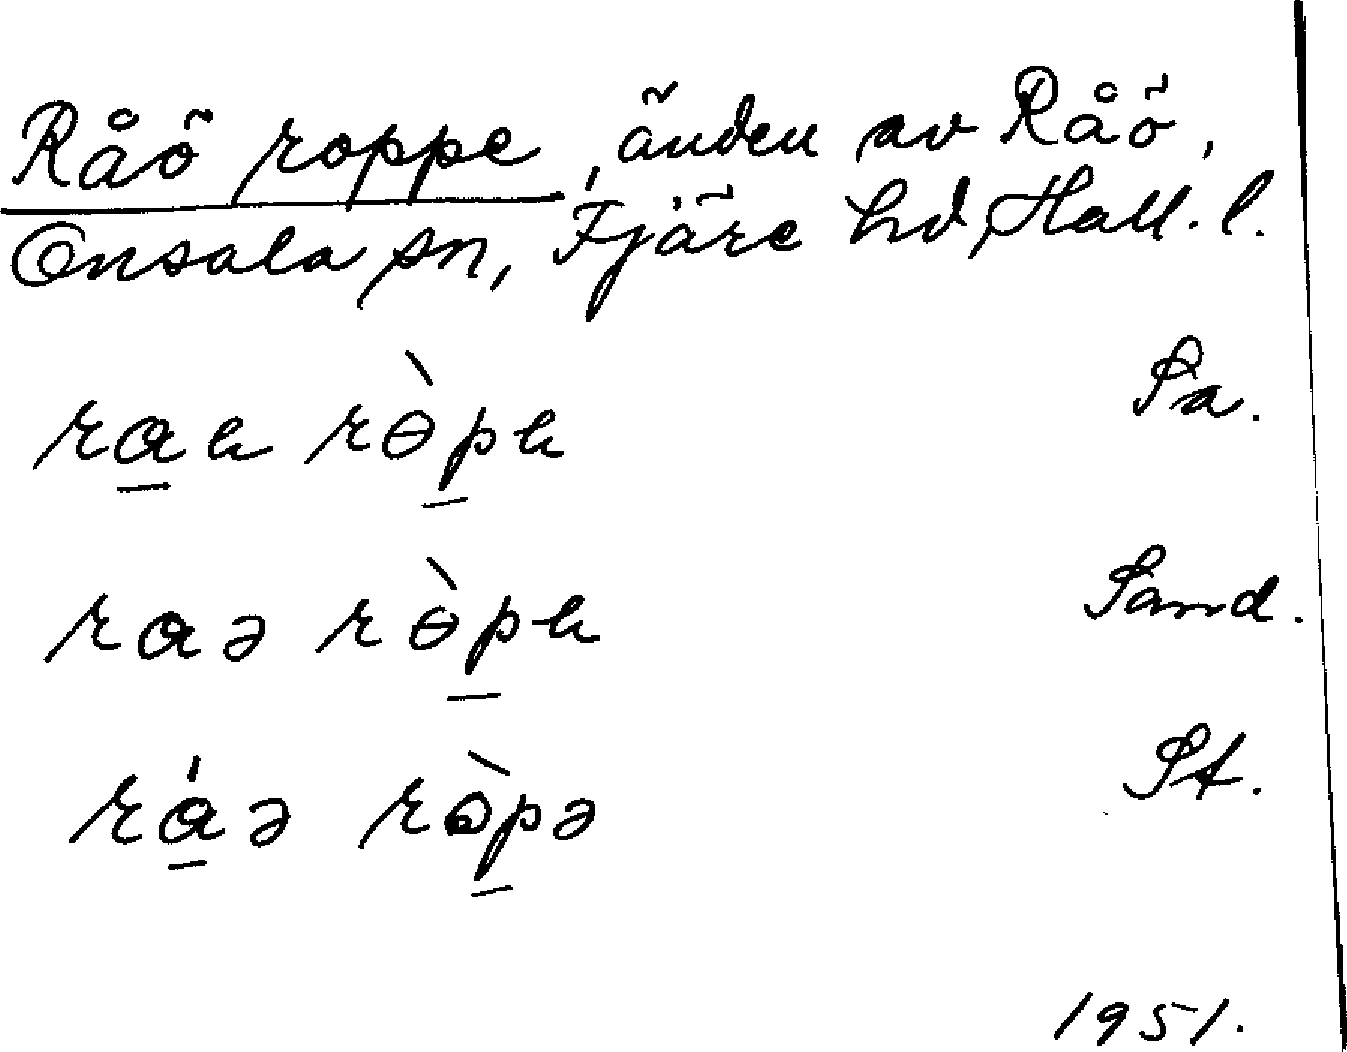 Råö roppe, änden av Råö,
Onsala sn, Fjäre hd, Hall. l.
rɑ̲e rɵ̀p̲e Sa.
rɑə rɵ̀p̲e Sand.
rɑ̲́ə rɔ̀p̲ə St.
1951.